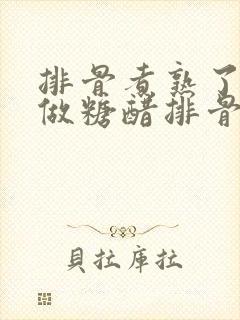 排骨煮熟了
做糖醋排骨
貝拉庫拉